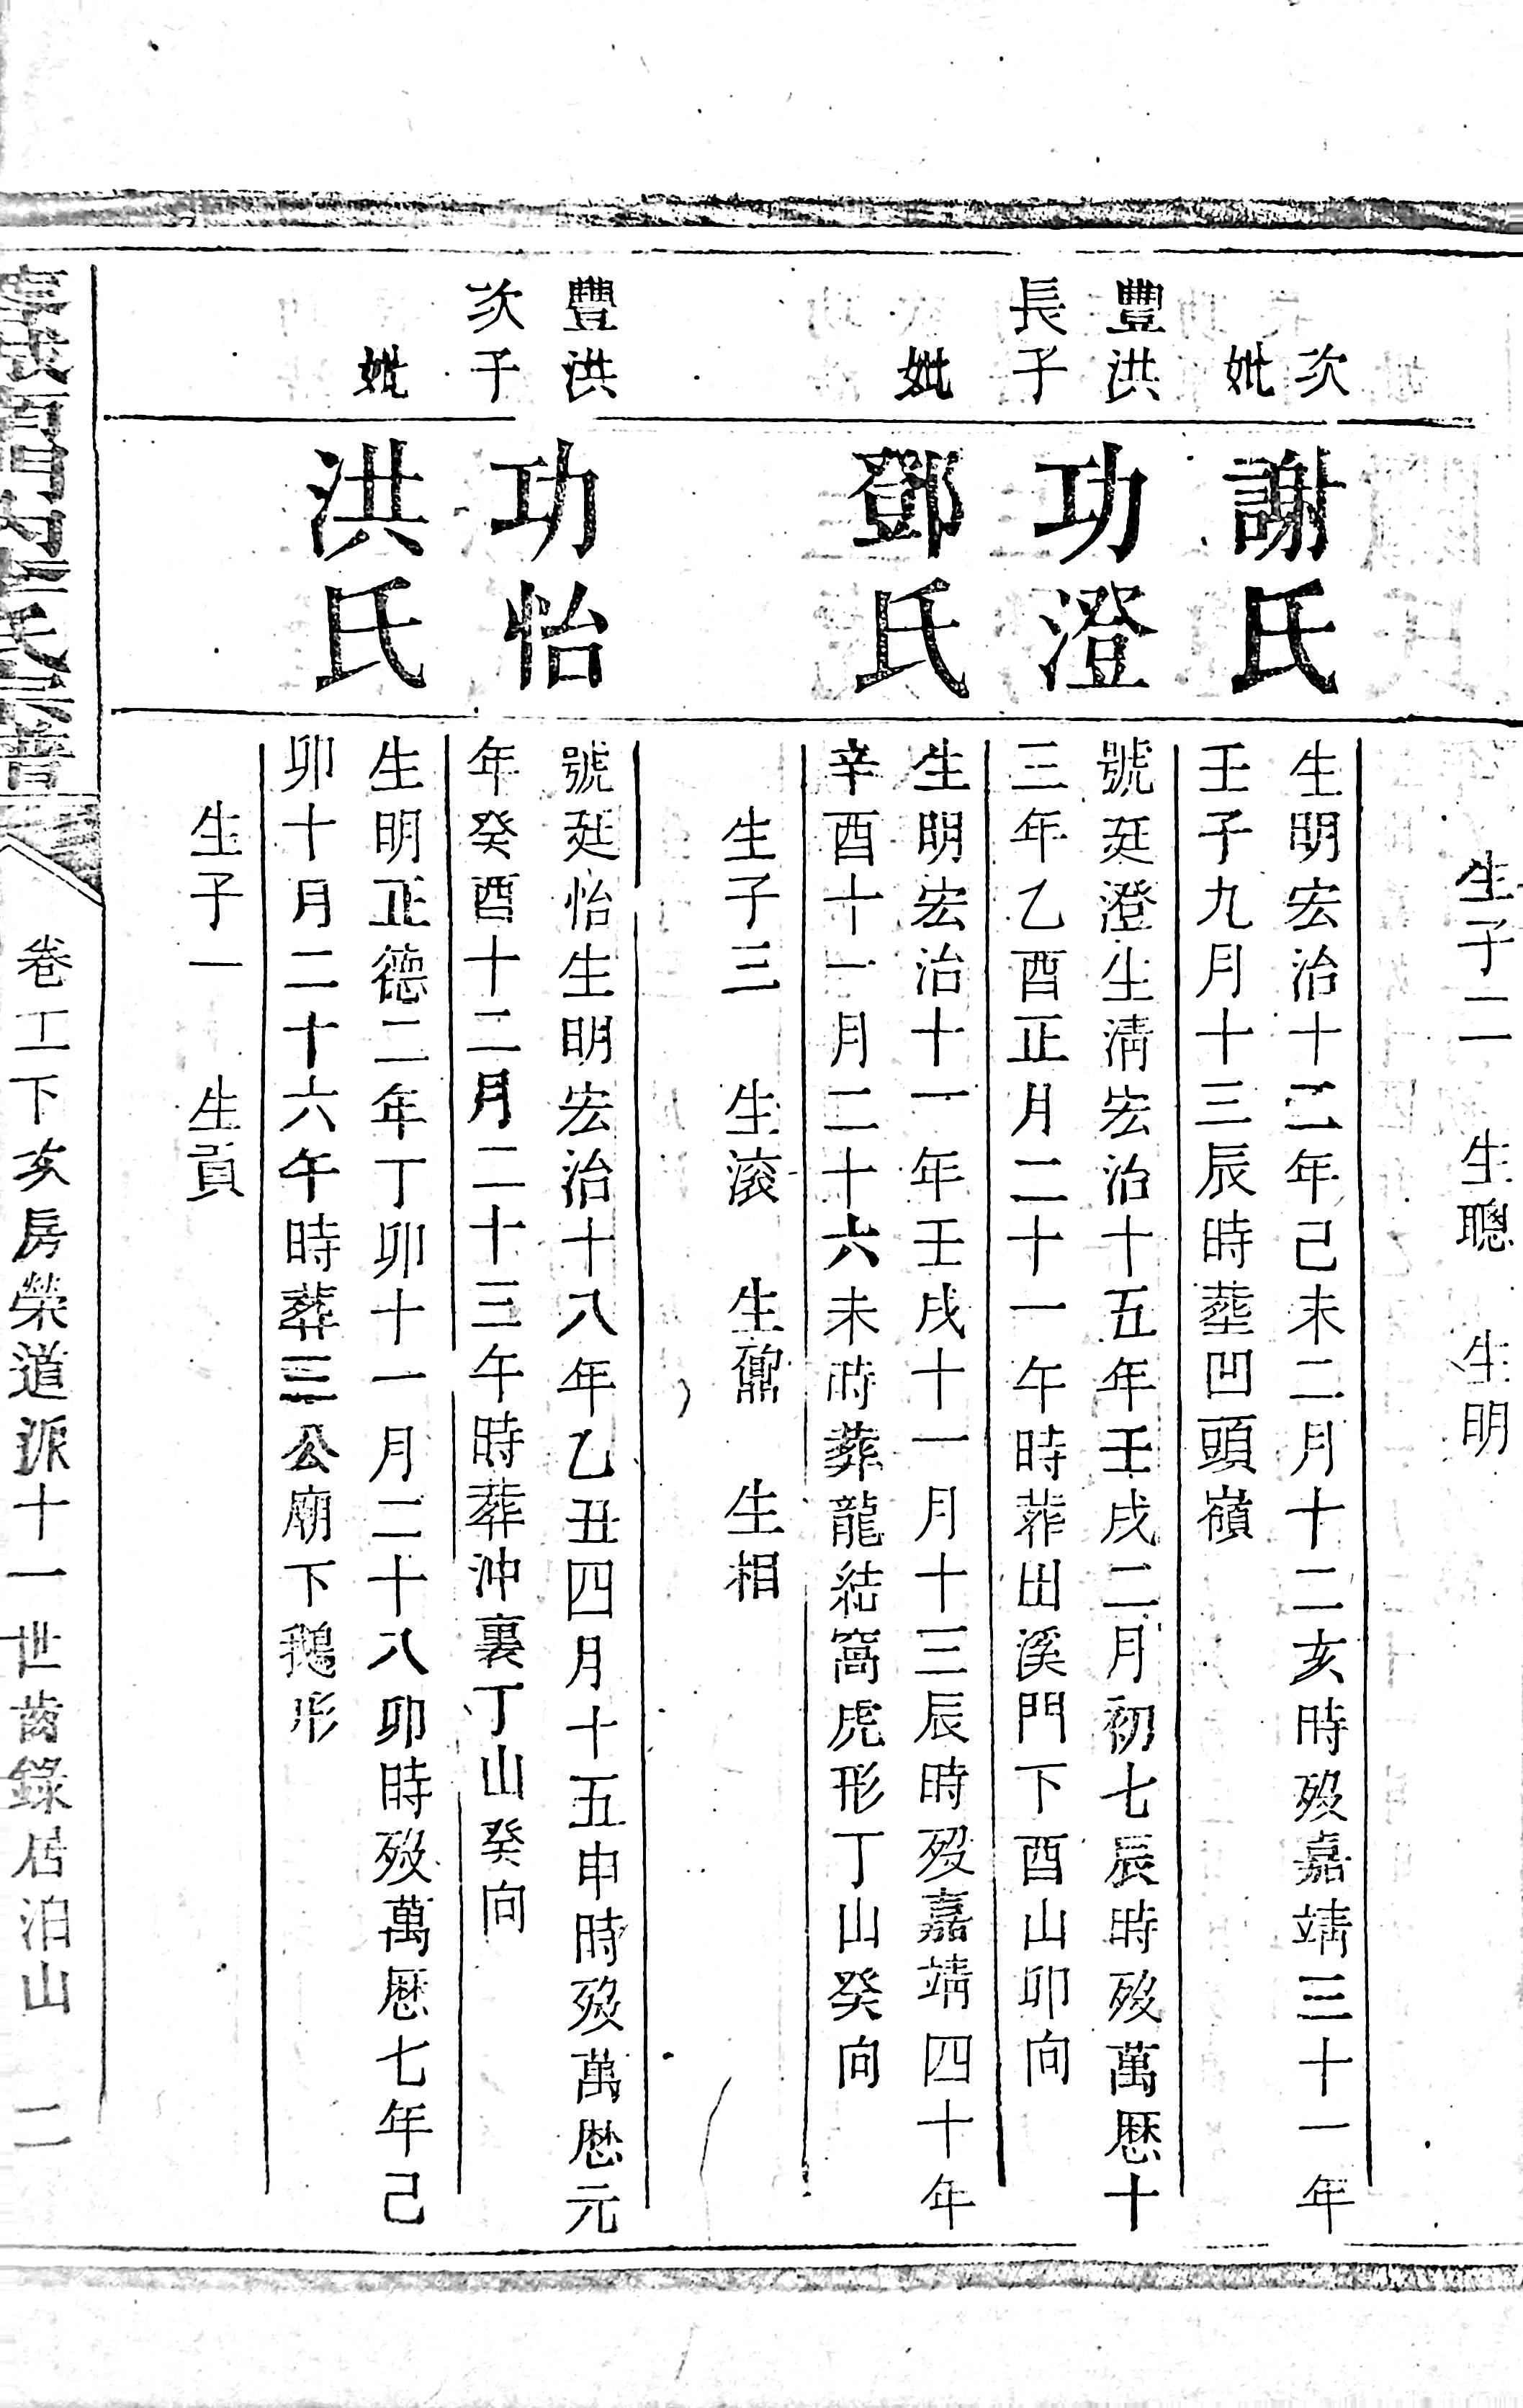 生子二　生聰　生明
次妣
謝氏
生明宏治十二年己未二月十二亥時歿嘉靖三十一年
壬子九月十三辰時塟凹頭嶺
豐洪
長子
功澄
號廷澄生淸宏治十五年壬戌二月初七辰時歿萬厯十
三年乙酉正月二十一午時葬出溪門下酉山卯向
妣
鄧氏
生明宏治十一年壬戌十一月十三辰時歿嘉靖四十年
辛酉十一月二十六未時葬龍結窩虎形丁山癸向
生子三　生滾　生鼐　生相
豐洪
次子
功怡
號廷怡生明宏治十八年乙丑四月十五申時歿萬厯元
年癸酉十二月二十三午時葬沖裏丁山癸向
妣
洪氏
生明正德二年丁卯十一月二十八卯時歿萬厯七年己
卯十月二十六午時葬三公廟下鵝形
生子一　生貢
氏宗譜
卷
下亥房榮道派十一世齒錄居泊山　二